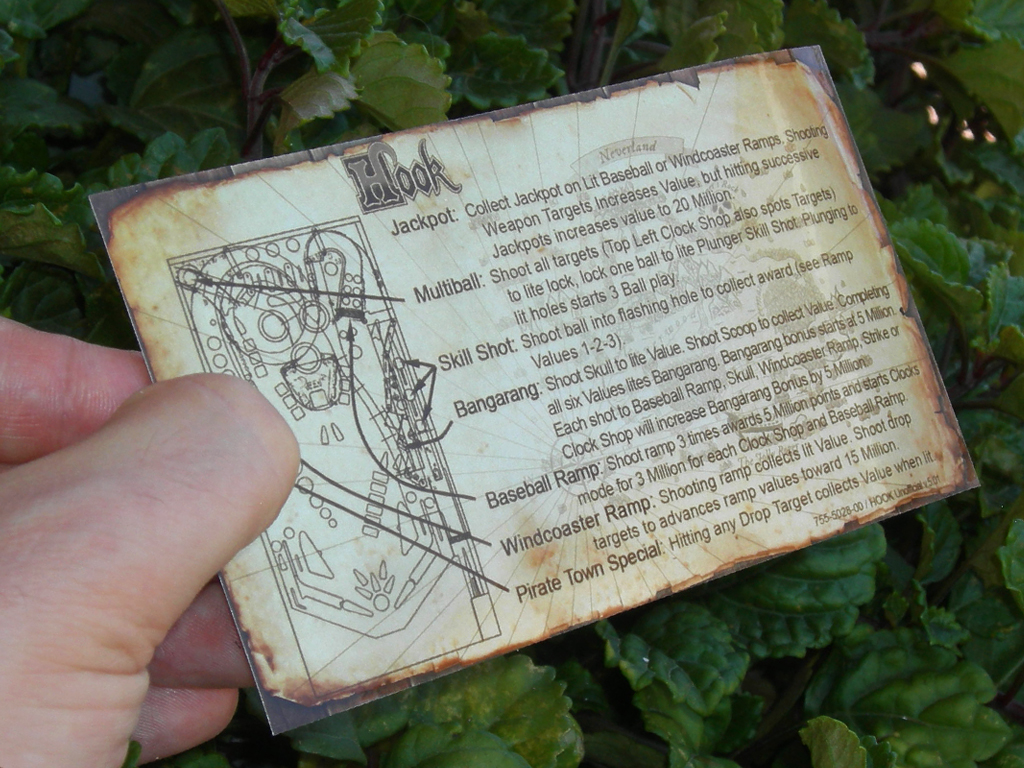 Hook
Neverland
Jackpot: Collect Jackpot on Lit Baseball or Windcoaster Ramps. Shooting
Weapon Targets Increases Value, but hitting successive
Jackpots increases value to 20 Million.
Multiball: Shoot all targets (Top Left Clock Shop also spots Targets)
to lite lock, lock one ball to lite Plunger Skill Shot. Plunging to
lit holes starts 3 Ball play
Skill Shot: Shoot ball into flashing hole to collect award (see Ramp
Values 1-2-3).
Bangarang: Shoot Skull to lite Value. Shoot Scoop to collect Value. Completing
all six Values lites Bangarang. Bangarang bonus starts at 5 Million.
Each shot to Baseball Ramp, Skull, Windcoaster Ramp, Strike or
Clock Shop will increase Bangarang Bonus by 5 Million!
Baseball Ramp: Shoot ramp 3 times awards 5 Million points and starts Clocks
mode for 3 Million for each Clock Shop and Baseball Ramp.
Windcoaster Ramp: Shooting ramp collects lit Value. Shoot drop
targets to advances ramp values toward 15 Million.
Pirate Town Special: Hitting any Drop Target collects Value when lit.
755-5028-00 / HOOK Unofficial